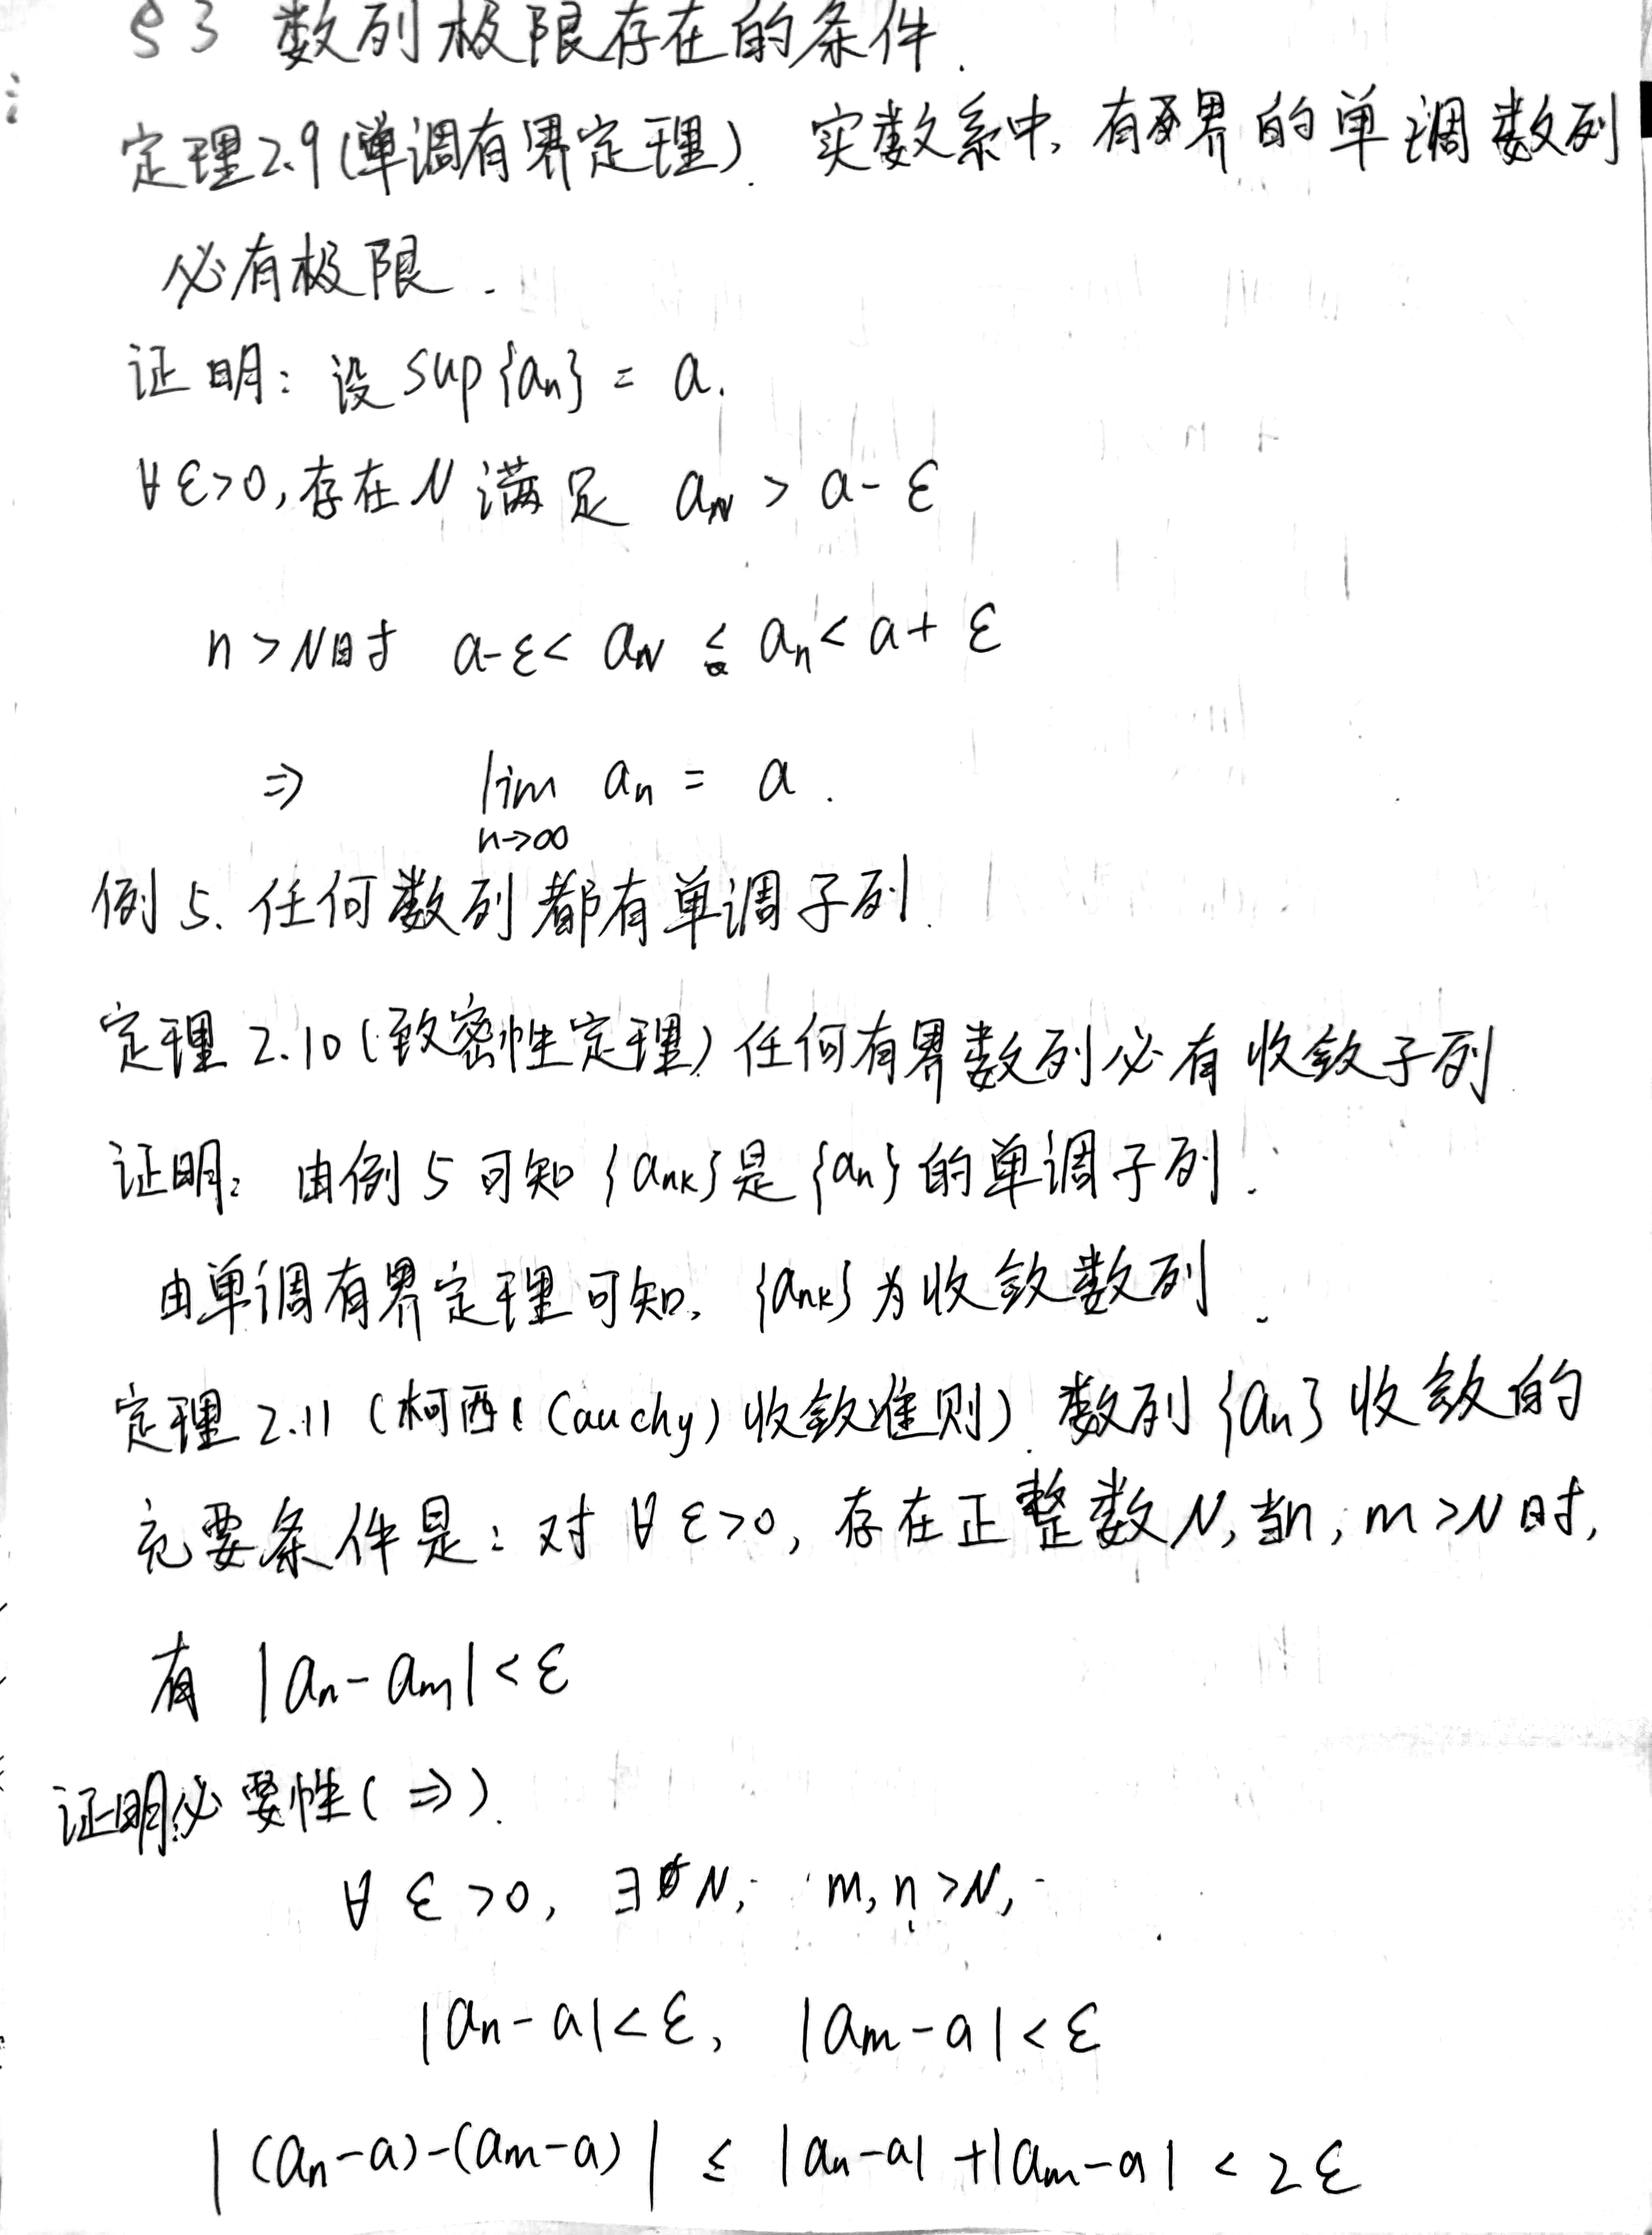 §3 数列极限存在的条件.
定理2.9(单调有界定理). 实数系中, 有界的单调数列
必有极限.
证明: 设 sup{an} = a.
∀ε>0, 存在 N 满足 aN > a-ε
n>N时 a-ε< aN ≤ an < a+ε
⇒ lim an = a.
n→∞
例5. 任何数列都有单调子列.
定理2.10(致密性定理) 任何有界数列必有收敛子列
证明: 由例5可知 {ank}是{an}的单调子列.
由单调有界定理可知, {ank}为收敛数列.
定理2.11 (柯西(Cauchy)收敛准则). 数列{an}收敛的
充要条件是: 对∀ε>0, 存在正整数N, 当n, m>N时,
有 |an-am|<ε
证明必要性(⇒).
∀ε>0, ∃N, m,n>N,
|an-a|<ε, |am-a|<ε
|(an-a)-(am-a)| ≤ |an-a|+|am-a| < 2ε